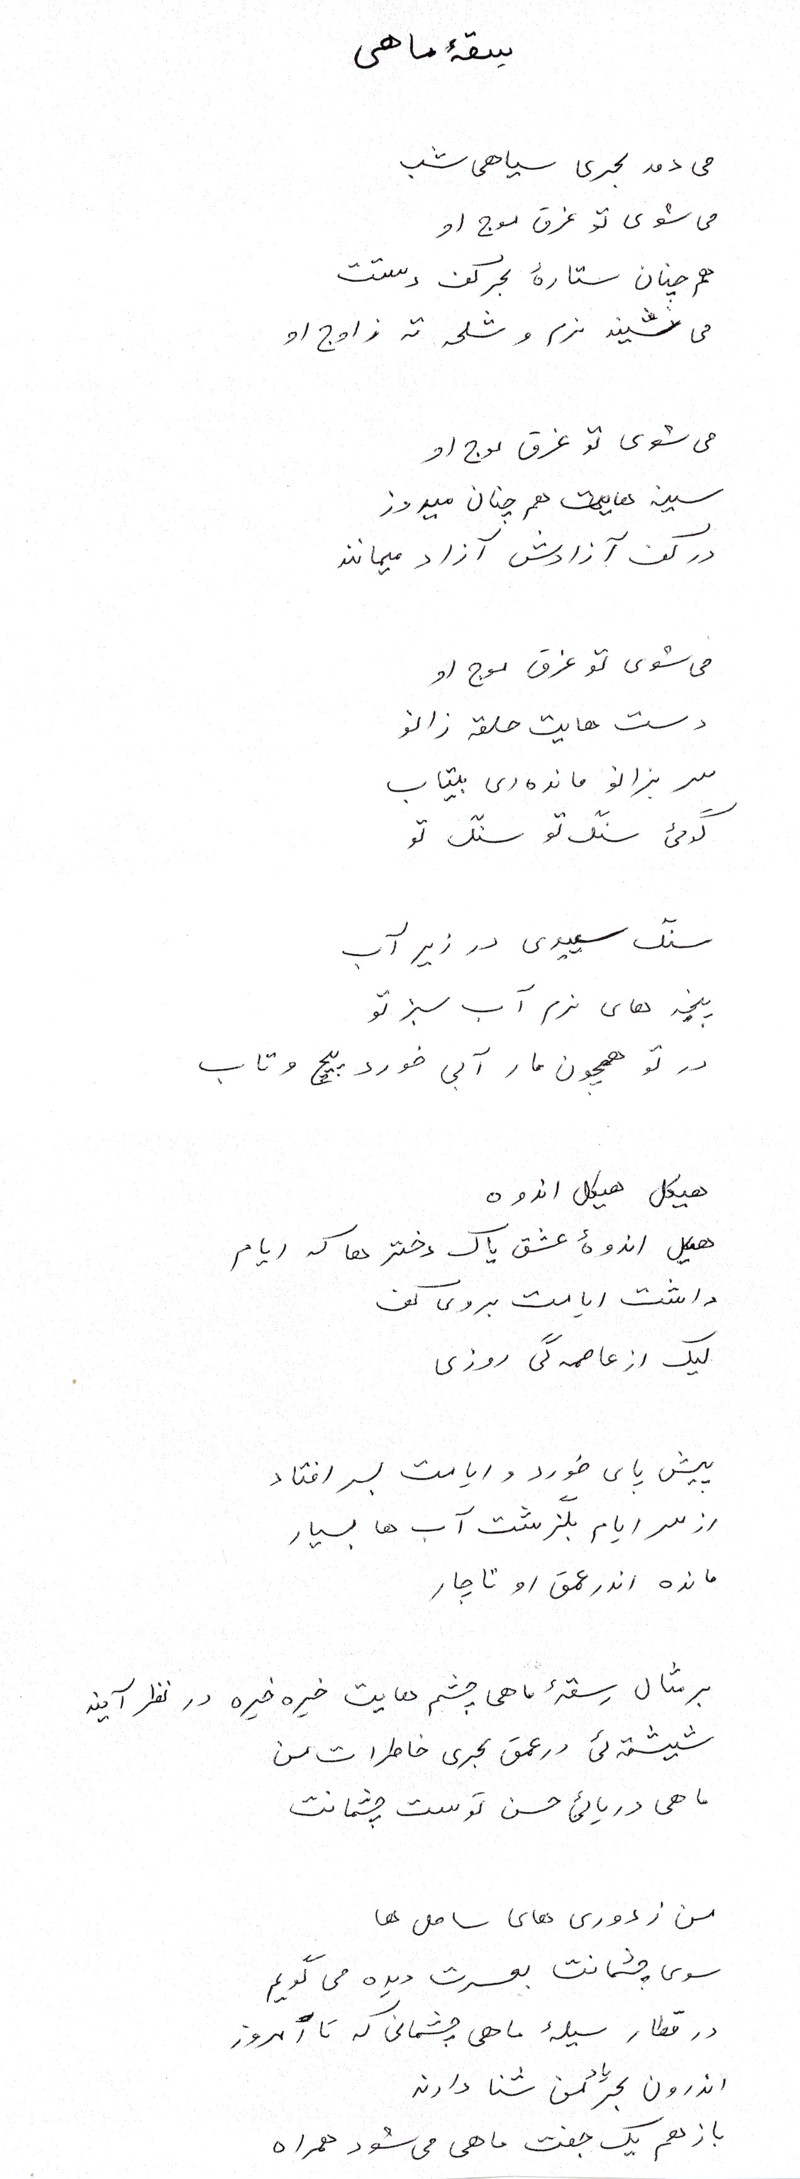 سقهٔ ماهی
می دمد بحری سیاهی شب
می شوی تو غرق موج او
هم چنان ستارهٔ بحر کف دستت
می نشیند نرم و شلحه ته ز اوج او
می شوی تو غرق موج او
سینه هایت هم چنان میدوز
در کف آزادش آزاد میمانند
می شوی تو غرق موج او
دست هایت حلقه زانو
سر بزانو مانده‌ای بیتاب
گوئی سنگ تو سنگ تو
سنگ سپیدی در زیر آب
پنجه های نرم آب سبز تو
در تو همچون مار آبی خورد پیچ و تاب
هیکل هیکل اندوه
هیکل اندوهٔ عشق پاک دختر ها که ایام
داشت ایامت بروی کف
لیک از عاصمه گی روزی
پیش پای خورد و ایامت بسر افتاد
از سر ایام بگذشت آب ها بسیار
مانده اندر عمق او ناچار
بر مثال رسقهٔ ماهی چشم هایت خیره خیره در نظر آیند
شیشه ئی در عمق بحری خاطرات من
ماهی دریائی حسن توست چشمانت
من ز دوری های ساحل ها
سوی چشمانت بحسرت دیده می گویم
در قطار سیلهٔ ماهی چشمانی که تا امروز
اندرون بحر یاد من شنا دارند
باز هم یک جفت ماهی می شود همراه